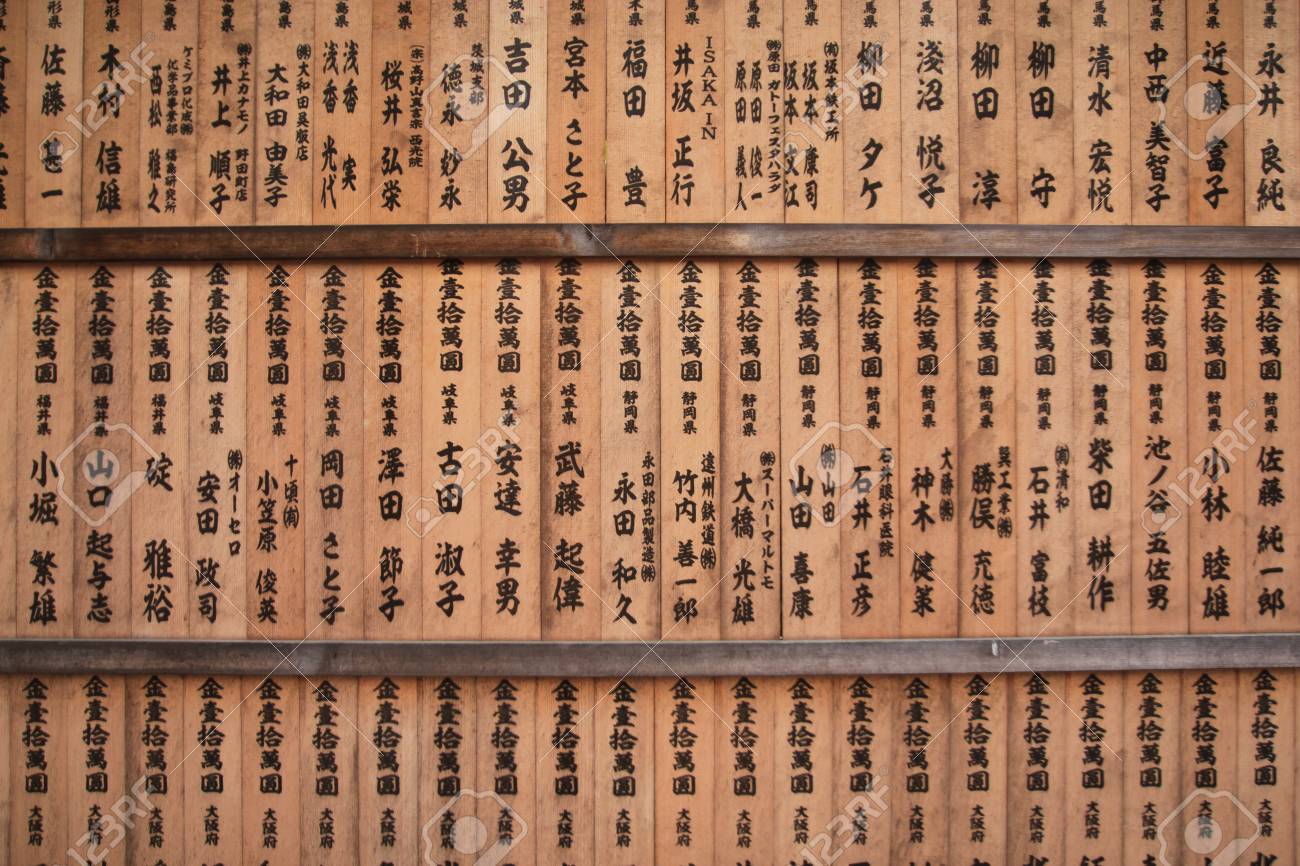 永井 良純
近藤 富子
中西 美智子
清水 宏悦
柳田 守
柳田 淳
浅沼 悦子
柳田 タケ
㈲坂本鉄工所
坂本 康司
坂本 文江
㈱原田 ガトーフェスタハラダ
原田 俊一
原田 義人
ISAKA IN
井坂 正行
福田 豊
宮本 さと子
吉田 公男
茨城支部
徳永 妙永
桜井 弘栄
浅香 実
浅香 光代
㈱大和田呉服店
大和田 由美子
㈱井上カナモノ 野田町店
井上 順子
ケミプロ化成㈱
化学品事業部 福島研究所
西松 雅久
木村 信雄
佐藤 甚一
金壹拾萬圓 静岡県 佐藤 純一郎
金壹拾萬圓 静岡県 小林 睦雄
金壹拾萬圓 静岡県 池ノ谷 五佐男
金壹拾萬圓 静岡県 柴田 耕作
金壹拾萬圓 静岡県 ㈲清和
石井 富枝
金壹拾萬圓 静岡県 巽工業㈱
勝俣 充徳
金壹拾萬圓 静岡県 大勝㈱
神木 健策
金壹拾萬圓 静岡県 石井眼科医院
石井 正彦
金壹拾萬圓 静岡県 ㈱山田
山田 喜康
金壹拾萬圓 静岡県 ㈱スーパーマルトモ
大橋 光雄
金壹拾萬圓 静岡県 遠州鉄道㈱
竹内 善一郎
金壹拾萬圓 静岡県 永田部品製造㈱
永田 和久
金壹拾萬圓 岐阜県 武藤 起偉
金壹拾萬圓 岐阜県 安達 幸男
金壹拾萬圓 岐阜県 古田 淑子
金壹拾萬圓 岐阜県 澤田 節子
金壹拾萬圓 岐阜県 岡田 さと子
金壹拾萬圓 岐阜県 十頃㈲
小笠原 俊英
金壹拾萬圓 岐阜県 ㈱オーセロ
安田 政司
金壹拾萬圓 福井県 碇 雅裕
金壹拾萬圓 福井県 山口 起与志
金壹拾萬圓 福井県 小堀 繁雄
金壹拾萬圓 大阪府
金壹拾萬圓 大阪府
金壹拾萬圓 大阪府
金壹拾萬圓 大阪府
金壹拾萬圓 大阪府
金壹拾萬圓 大阪府
金壹拾萬圓 大阪府
金壹拾萬圓 大阪府
金壹拾萬圓 大阪府
金壹拾萬圓 大阪府
金壹拾萬圓 大阪府
金壹拾萬圓 大阪府
金壹拾萬圓 大阪府
金壹拾萬圓 大阪府
金壹拾萬圓 大阪府
金壹拾萬圓 大阪府
金壹拾萬圓 大阪府
金壹拾萬圓 大阪府
金壹拾萬圓 大阪府
金壹拾萬圓 大阪府
金壹拾萬圓 大阪府
金壹拾萬圓 大阪府